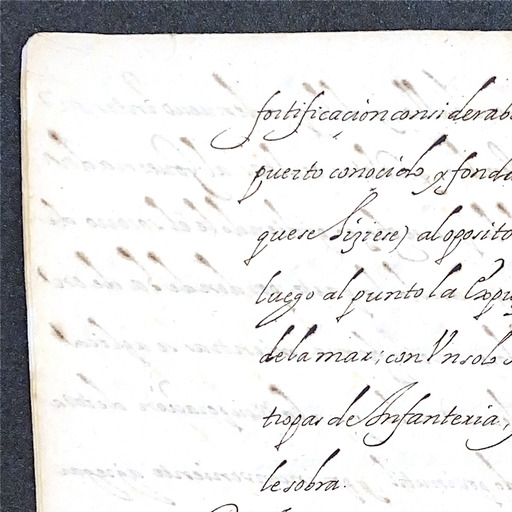 fortificacion considerab
puerto conocido, y fond
que se hiziese) al oposito
luego al punto la Expu
de la mar; con Vn solo
tropas de Infanteria,
le sobra.